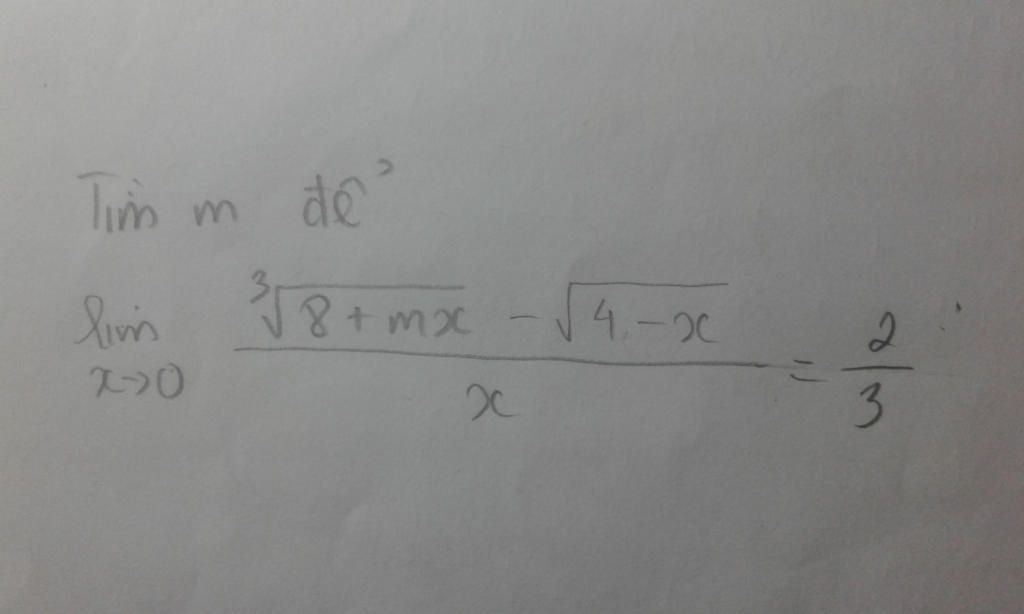 Tìm m để
lim x→0 (∛(8 + mx) - √(4 - x)) / x = 2/3